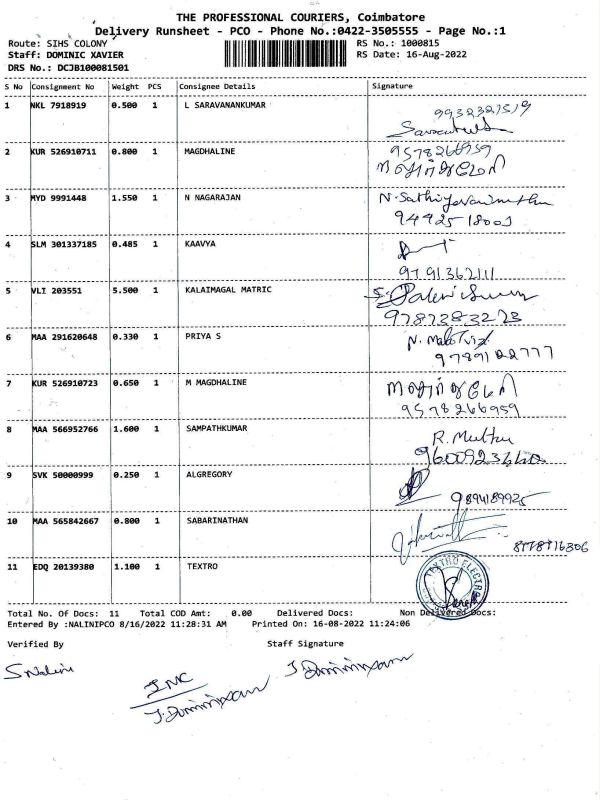 THE PROFESSIONAL COURIERS, Coimbatore
Delivery Runsheet - PCO - Phone No.:0422-3505555 - Page No.:1
Route: SIHS COLONY RS No.: 1000815
Staff: DOMINIC XAVIER RS Date: 16-Aug-2022
DRS No.: DCJB100081501
S No Consignment No Weight PCS Consignee Details Signature
1 NKL 7918919 0.500 1 L SARAVANANKUMAR
2 KUR 526910711 0.800 1 MAGDHALINE 9578266959
3 MYD 9991448 1.550 1 N NAGARAJAN
94425 18003
4 SLM 301337185 0.485 1 KAAVYA
9791362111
5 VLI 203551 5.500 1 KALAIMAGAL MATRIC
9787383273
6 MAA 291620648 0.330 1 PRIYA S
9789122777
7 KUR 526910723 0.650 1 M MAGDHALINE
9578266959
8 MAA 566952766 1.600 1 SAMPATHKUMAR R. Muthu
9 SVK 50000999 0.250 1 ALGREGORY
9894189925
10 MAA 565842667 0.800 1 SABARINATHAN
8778716306
11 EDQ 20139380 1.100 1 TEXTRO TEXTRO ELECTR
Total No. Of Docs: 11 Total COD Amt: 0.00 Delivered Docs: Non Delivered Docs:
Entered By :NALINIPCO 8/16/2022 11:28:31 AM Printed On: 16-08-2022 11:24:06
Verified By Staff Signature
SNalini